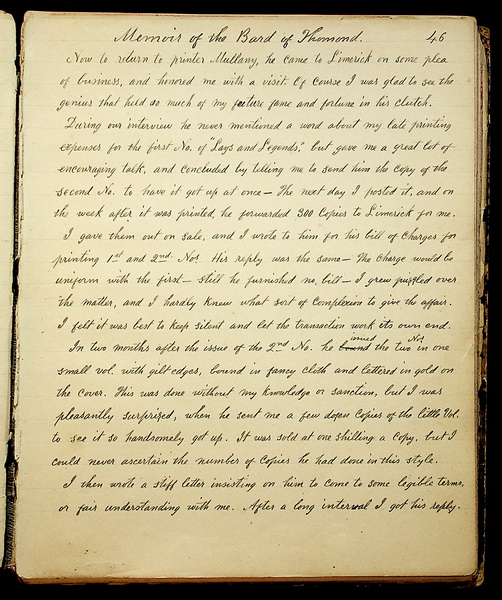 Memoir of the Bard of Thomond. 46
Now to return to printer Mullany, he came to Limerick on some plea
of business, and honored me with a visit. Of course I was glad to see the
genius that held so much of my future fame and fortune in his clutch.
During our interview he never mentioned a word about my late printing
expenses for the first No. of "Lays and Legends," but gave me a great lot of
encouraging talk, and concluded by telling me to send him the copy of the
second No. to have it got up at once — The next day I posted it, and on
the week after it was printed, he forwarded 300 Copies to Limerick for me.
I gave them out on sale, and I wrote to him for his bill of Charges for
printing 1st and 2nd Nos. His reply was the same — The Charge would be
uniform with the first — still he furnished no bill — I grew puzzled over
the matter, and I hardly knew what sort of Complexion to give the affair.
I felt it was best to keep silent and let the transaction work its own end.
In two months after the issue of the 2nd No. he bound joined the two Nos in one
small vol. with gilt-edges, bound in fancy cloth and lettered in gold on
the cover. This was done without my knowledge or sanction, but I was
pleasantly surprized, when he sent me a few dozen Copies of the little Vol.
to see it so handsomely got up. It was sold at one shilling a Copy, but I
could never ascertain the number of Copies he had done in this style.
I then wrote a stiff letter insisting on him to come to some legible terms,
or fair understanding with me. After a long interval I got his reply.